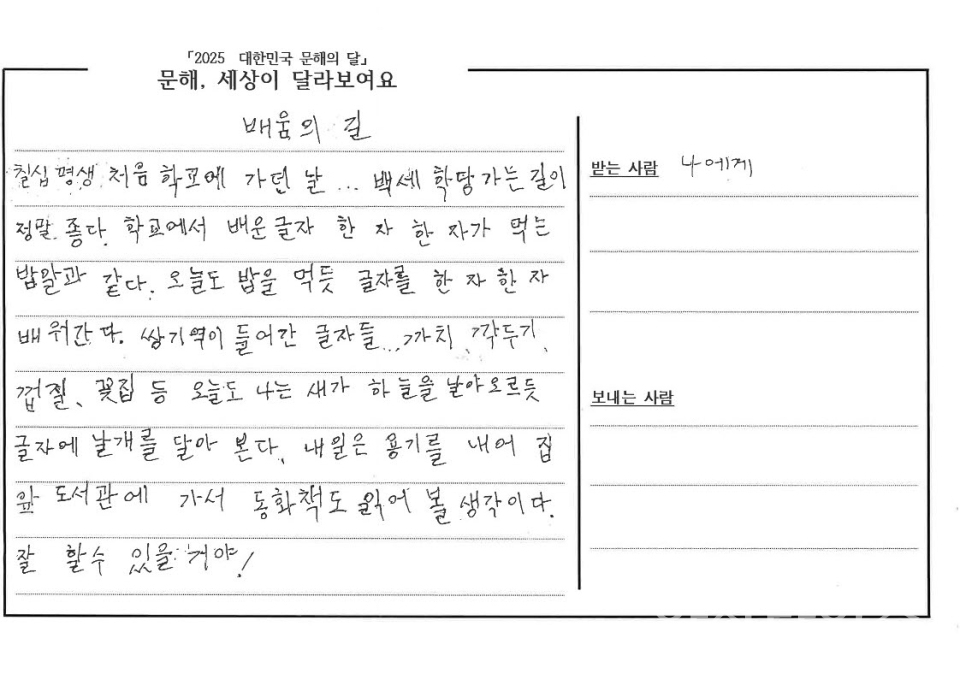 「2025 대한민국 문해의 달」
문해, 세상이 달라보여요
배움의 길
칠십평생 처음 학교에 가던 날 ... 백세 학당가는 길이
정말 좋다. 학교에서 배운글자 한 자 한 자가 먹는
밥알과 같다. 오늘도 밥을 먹듯 글자를 한 자 한 자
배워간다. 쌍기역이 들어간 글자들... 까치, 깍두기,
껍질, 꽃집 등 오늘도 나는 새가 하늘을 날아오르듯
글자에 날개를 달아 본다. 내일은 용기를 내어 집
앞 도서관에 가서 동화책도 읽어 볼 생각이다.
잘 할수 있을거야!
받는 사람 나에게
보내는 사람